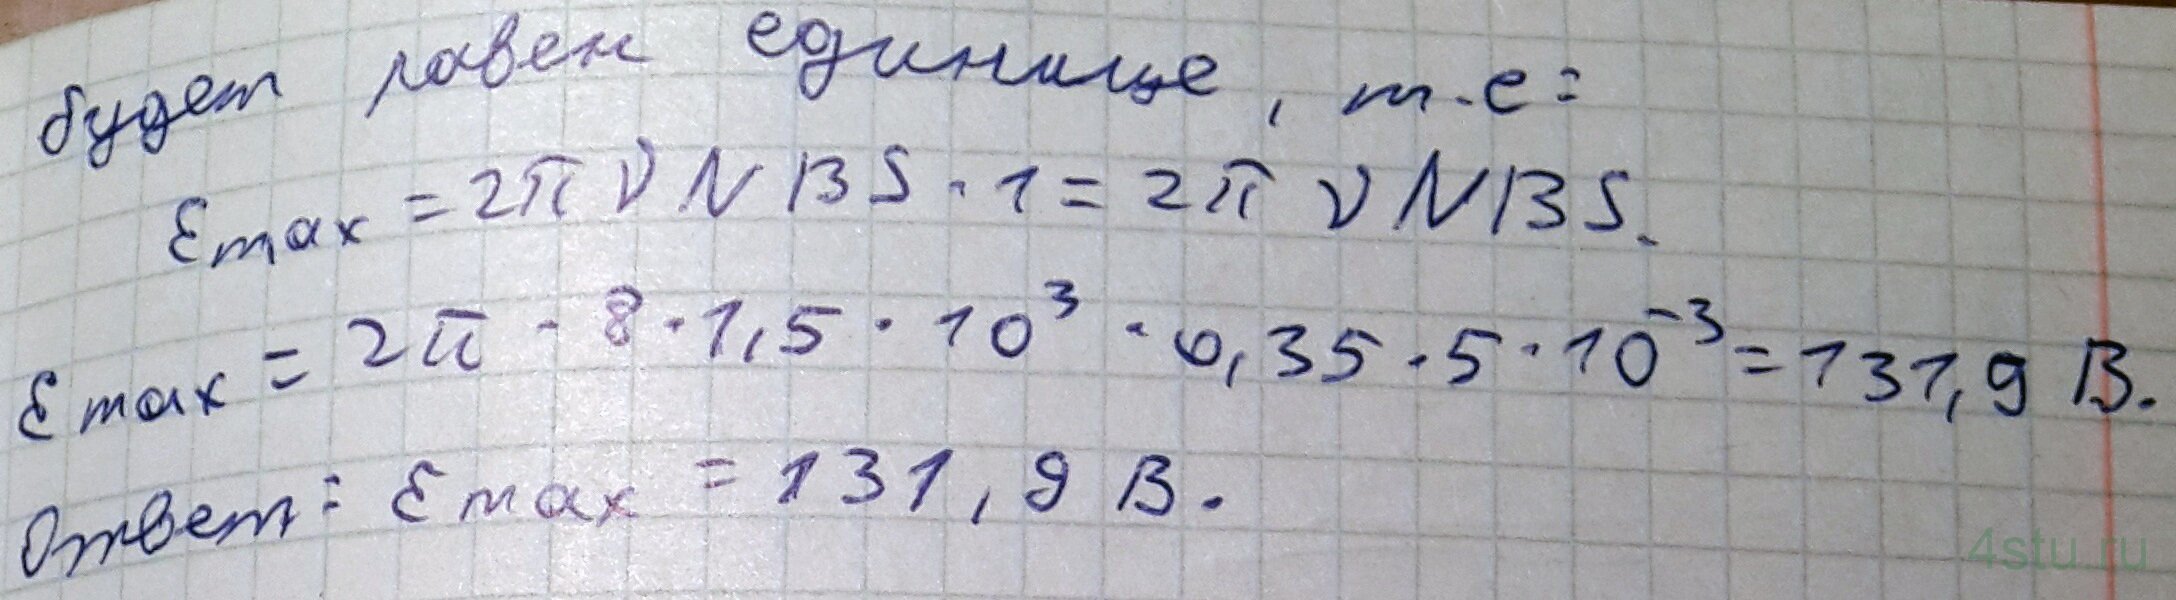 будет равен единице, т.е:
Ɛmax = 2π ν N B S · 1 = 2π ν N B S.
Ɛmax = 2π · 8 · 1,5 · 10³ · 0,35 · 5 · 10⁻³ = 131,9 В.
Ответ: Ɛmax = 131,9 В.
4stu.ru